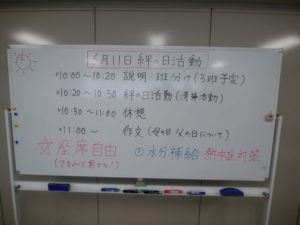 6月11日絆の日活動
*10:00〜10:20 説明・班分け(3班予定)
*10:20〜10:50 絆の日活動(清掃活動)
*10:50〜11:00 休憩
*11:00〜 作文(母の日 父の日について)
座席自由
水分補給 熱中症対策